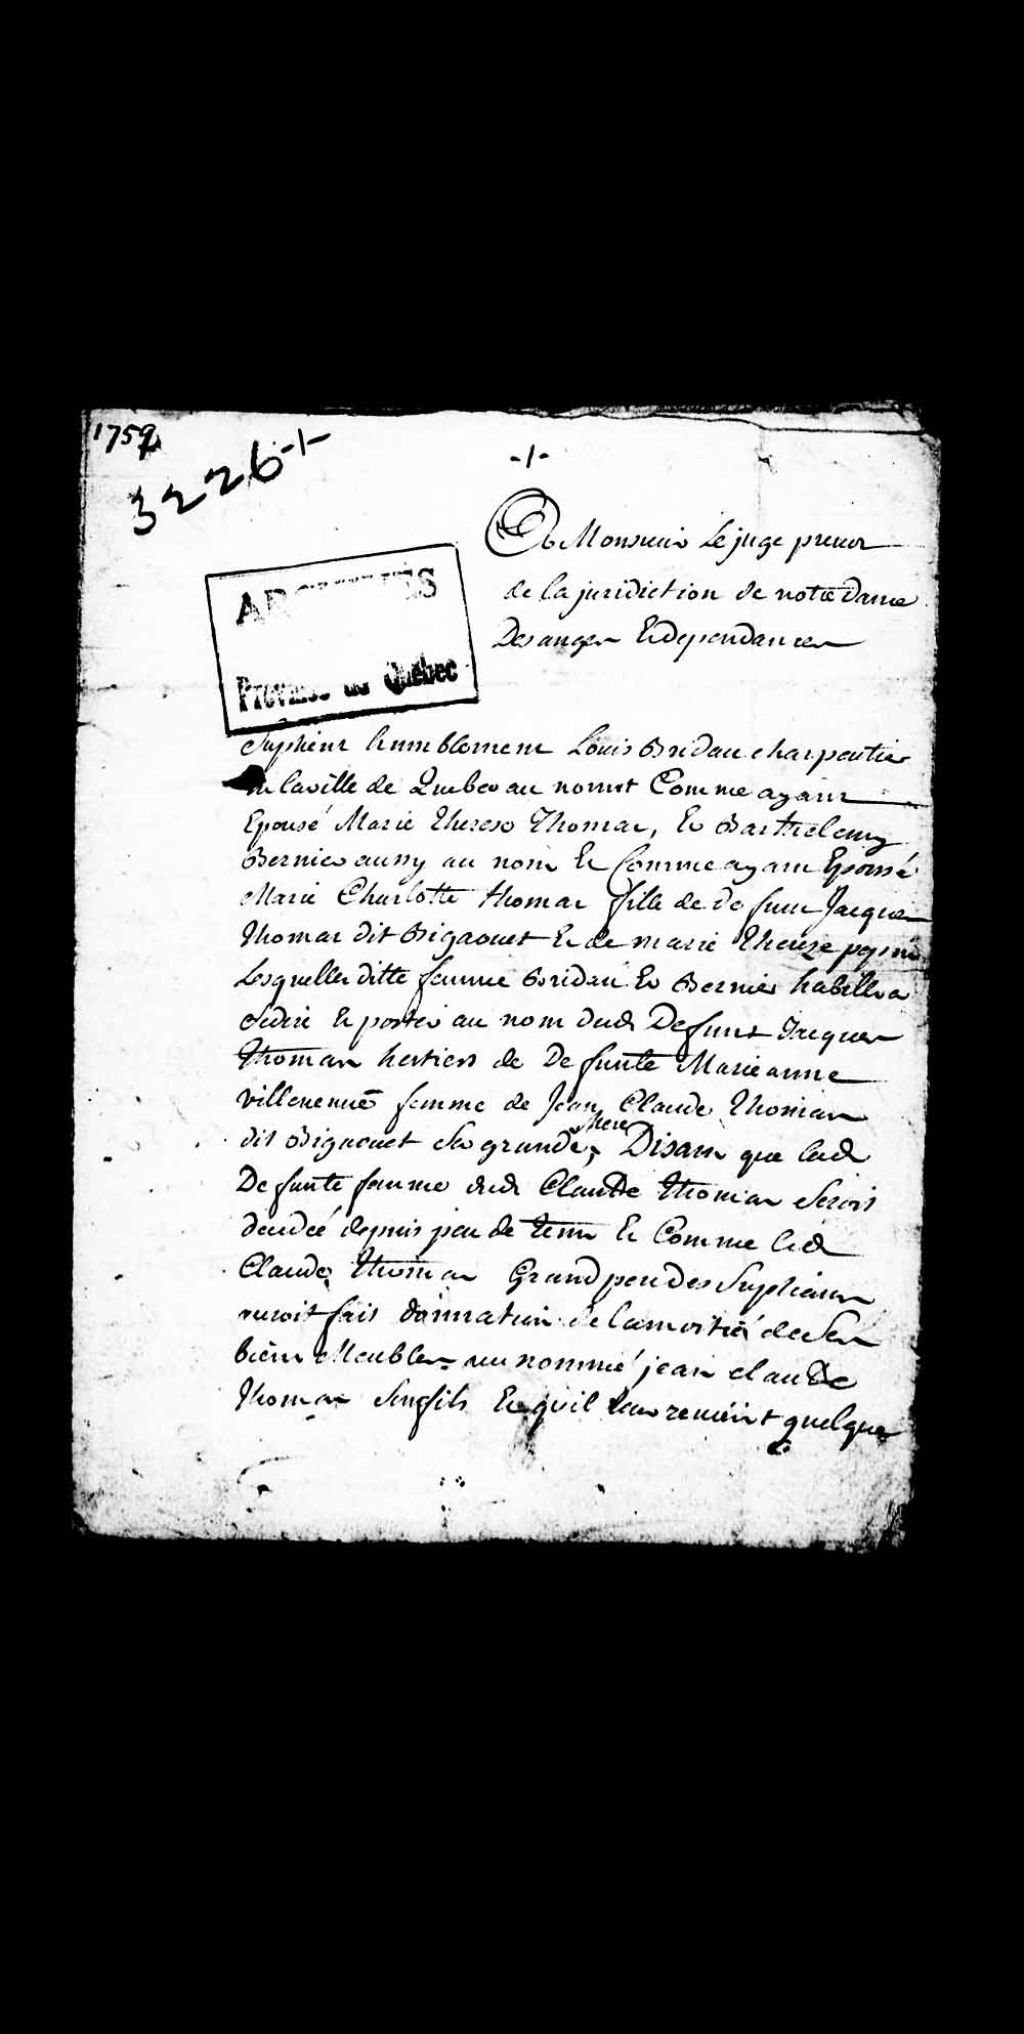 1752
3226-1-
-1-
A Monsieur Le juge prevot
de la juridiction de notre dame
Des anges Et dependances
Suplient humblement Louis Bridau charpentier
en la ville de Quebec au nom et Comme ayant
Epousé Marie therese Thomas, Et Barthelemy
Bernier aussy au nom Et Comme ayant Epousé
Marie Charlotte thomas fille de defunt Jacques
Thomas dit Bigaouet Et de marie thereze
Lesquelles ditte femme Bridau Et Bernier habille a
Se dire Et porter au nom dud Defunt Jacques
Thomas heritiers de Defunte Marie anne
villeneuve femme de Jean Claude Thomas
dit Bigaouet Sa grande mere, Disant que lad
Defunte femme dud Claude Thomas Serois
decedeé depuis peu de tems Et Comme led
Claude Thomas Grand pere des Supliants
auroit fait donnation de la moitié de Ses
biens Meubles au nommé jean claude
Thomas Son fils Et quil leur revient quelque
ARCHIVES
Province de Québec